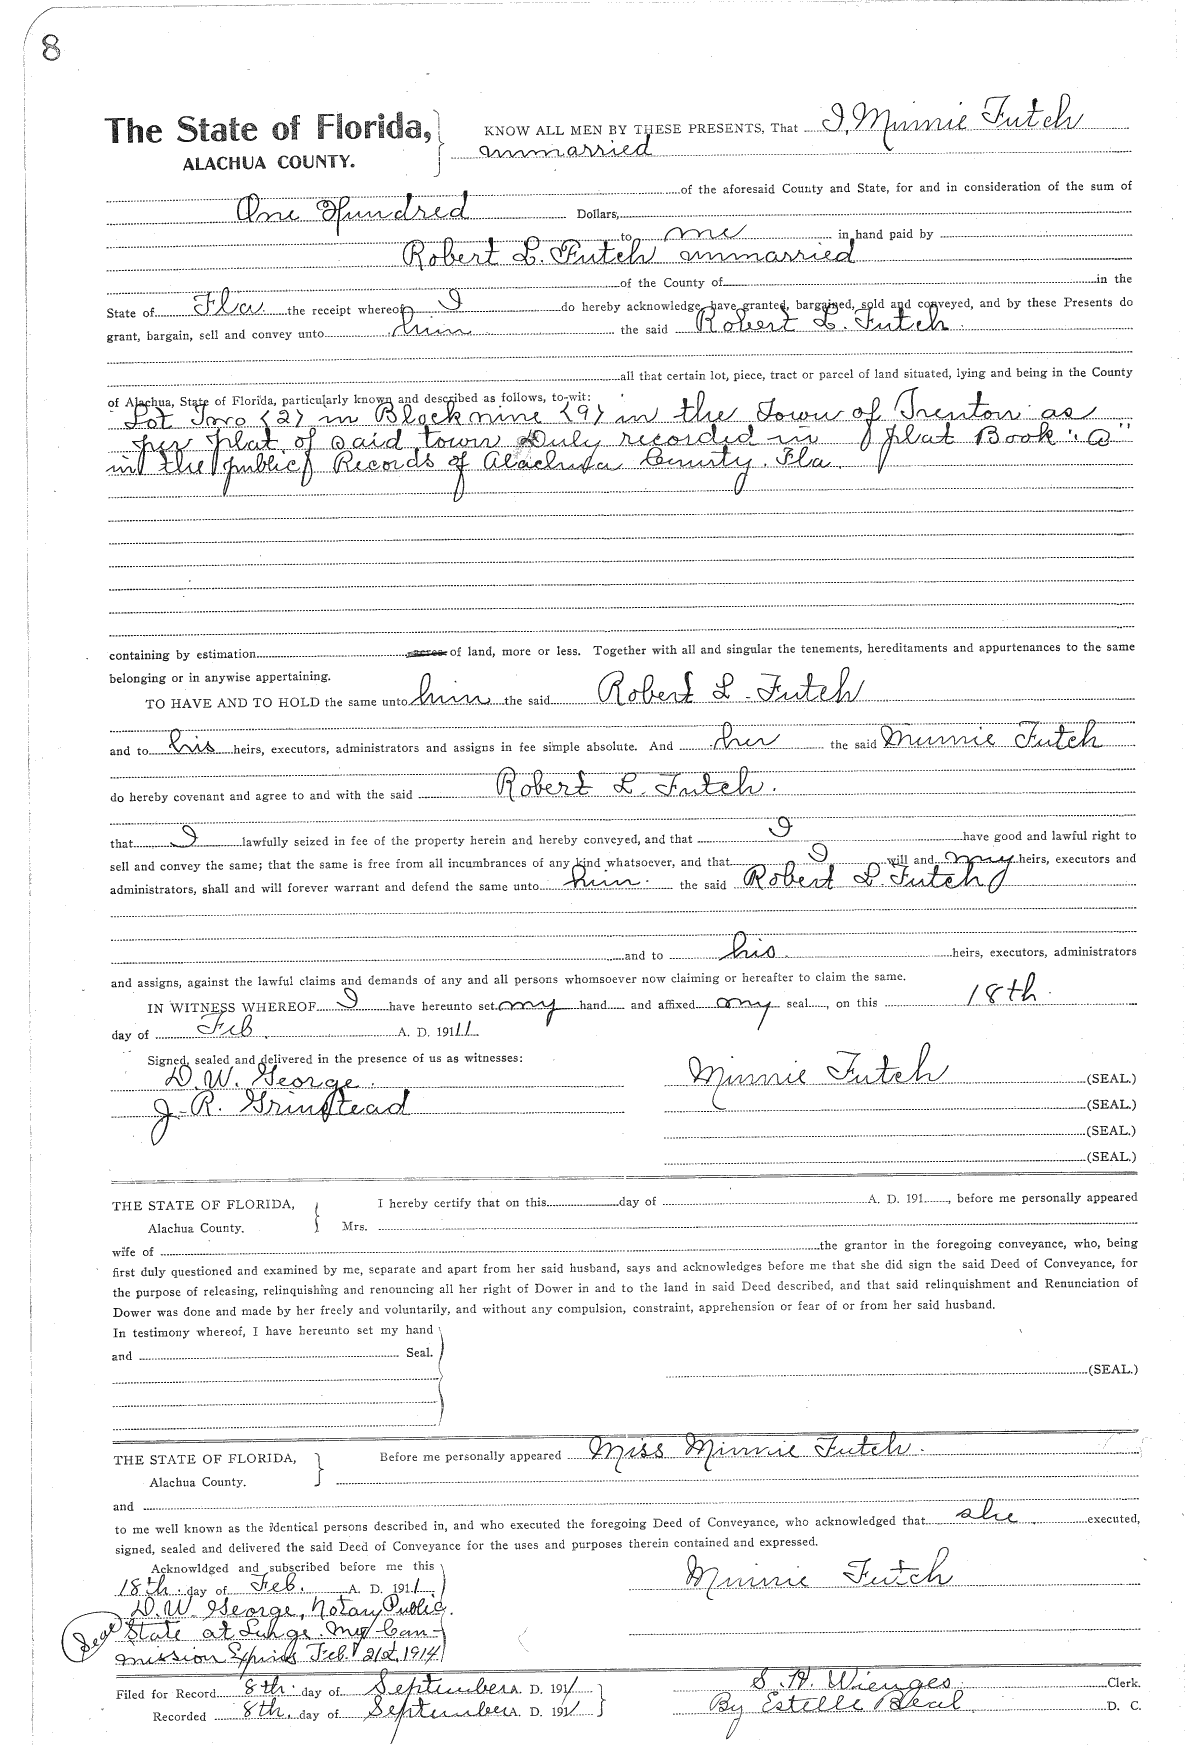 8
The State of Florida,
ALACHUA COUNTY.
KNOW ALL MEN BY THESE PRESENTS, That I, Minnie Futch
unmarried
of the aforesaid County and State, for and in consideration of the sum of
One Hundred Dollars,
to me in hand paid by
Robert L. Futch unmarried
of the County of in the
State of Fla. the receipt whereof I do hereby acknowledge, have granted, bargained, sold and conveyed, and by these Presents do
grant, bargain, sell and convey unto him the said Robert L. Futch.
all that certain lot, piece, tract or parcel of land situated, lying and being in the County
of Alachua, State of Florida, particularly known and described as follows, to-wit:
Lot Two (2) in Block nine (9) in the Town of Trenton as
per plat of said town Duly recorded in plat Book "a"
in the public Records of Alachua County. Fla.
containing by estimation acres of land, more or less. Together with all and singular the tenements, hereditaments and appurtenances to the same
belonging or in anywise appertaining.
TO HAVE AND TO HOLD the same unto him the said Robert L. Futch
and to his heirs, executors, administrators and assigns in fee simple absolute. And her the said Minnie Futch
do hereby covenant and agree to and with the said Robert L. Futch.
that I lawfully seized in fee of the property herein and hereby conveyed, and that I have good and lawful right to
sell and convey the same; that the same is free from all incumbrances of any kind whatsoever, and that I will and my heirs, executors and
administrators, shall and will forever warrant and defend the same unto him. the said Robert L. Futch
and to his heirs, executors, administrators
and assigns, against the lawful claims and demands of any and all persons whomsoever now claiming or hereafter to claim the same.
IN WITNESS WHEREOF I have hereunto set my hand and affixed my seal, on this 18th
day of Feb A. D. 1911
Signed, sealed and delivered in the presence of us as witnesses:
D. W. George. Minnie Futch (SEAL.)
J. R. Grinstead (SEAL.)
(SEAL.)
(SEAL.)
THE STATE OF FLORIDA,
Alachua County.
I hereby certify that on this day of A. D. 191 , before me personally appeared
Mrs.
wife of the grantor in the foregoing conveyance, who, being
first duly questioned and examined by me, separate and apart from her said husband, says and acknowledges before me that she did sign the said Deed of Conveyance, for
the purpose of releasing, relinquishing and renouncing all her right of Dower in and to the land in said Deed described, and that said relinquishment and Renunciation of
Dower was done and made by her freely and voluntarily, and without any compulsion, constraint, apprehension or fear of or from her said husband.
In testimony whereof, I have hereunto set my hand
and Seal.
(SEAL.)
THE STATE OF FLORIDA,
Alachua County.
Before me personally appeared Miss Minnie Futch.
and
to me well known as the identical persons described in, and who executed the foregoing Deed of Conveyance, who acknowledged that she executed,
signed, sealed and delivered the said Deed of Conveyance for the uses and purposes therein contained and expressed.
Acknowldged and subscribed before me this
18th. day of Feb. A. D. 1911
Minnie Futch
D. W. George, Notary Public.
Seal State at Large. My Com-
mission Expires Feb. 21st, 1914
Filed for Record 8th. day of September A. D. 1911
S. H. Wienges Clerk.
Recorded 8th. day of September A. D. 1911
By Estelle Beal D. C.